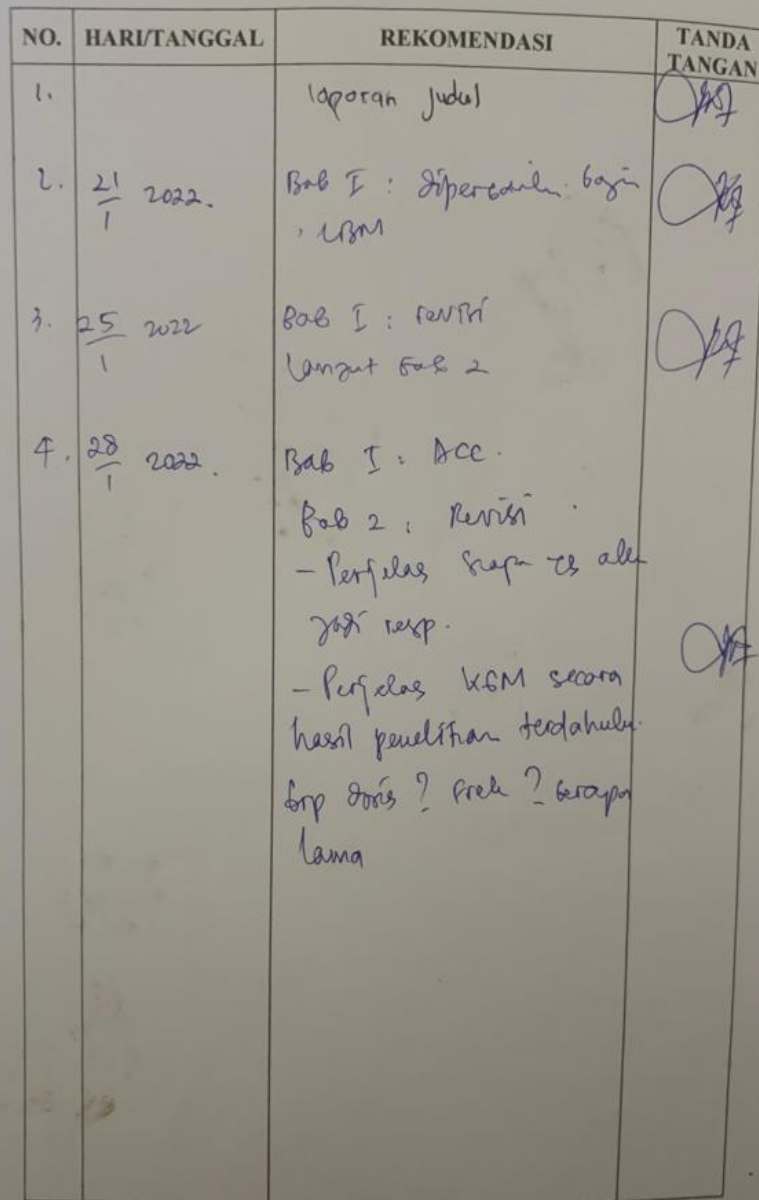 NO. HARI/TANGGAL REKOMENDASI TANDA TANGAN
1. laporan judul
2. 21/1 2022. Bab I :
3. 25/1 2022 Bab I : revisi
lanjut Bab 2
4. 28/1 2022. Bab I : ACC.
Bab 2 : Revisi
- Perjelas siapa yg
jadi resp.
- Perjelas secara
hasil penelitian terdahulu.
brp dosis ? frek ? berapa
lama